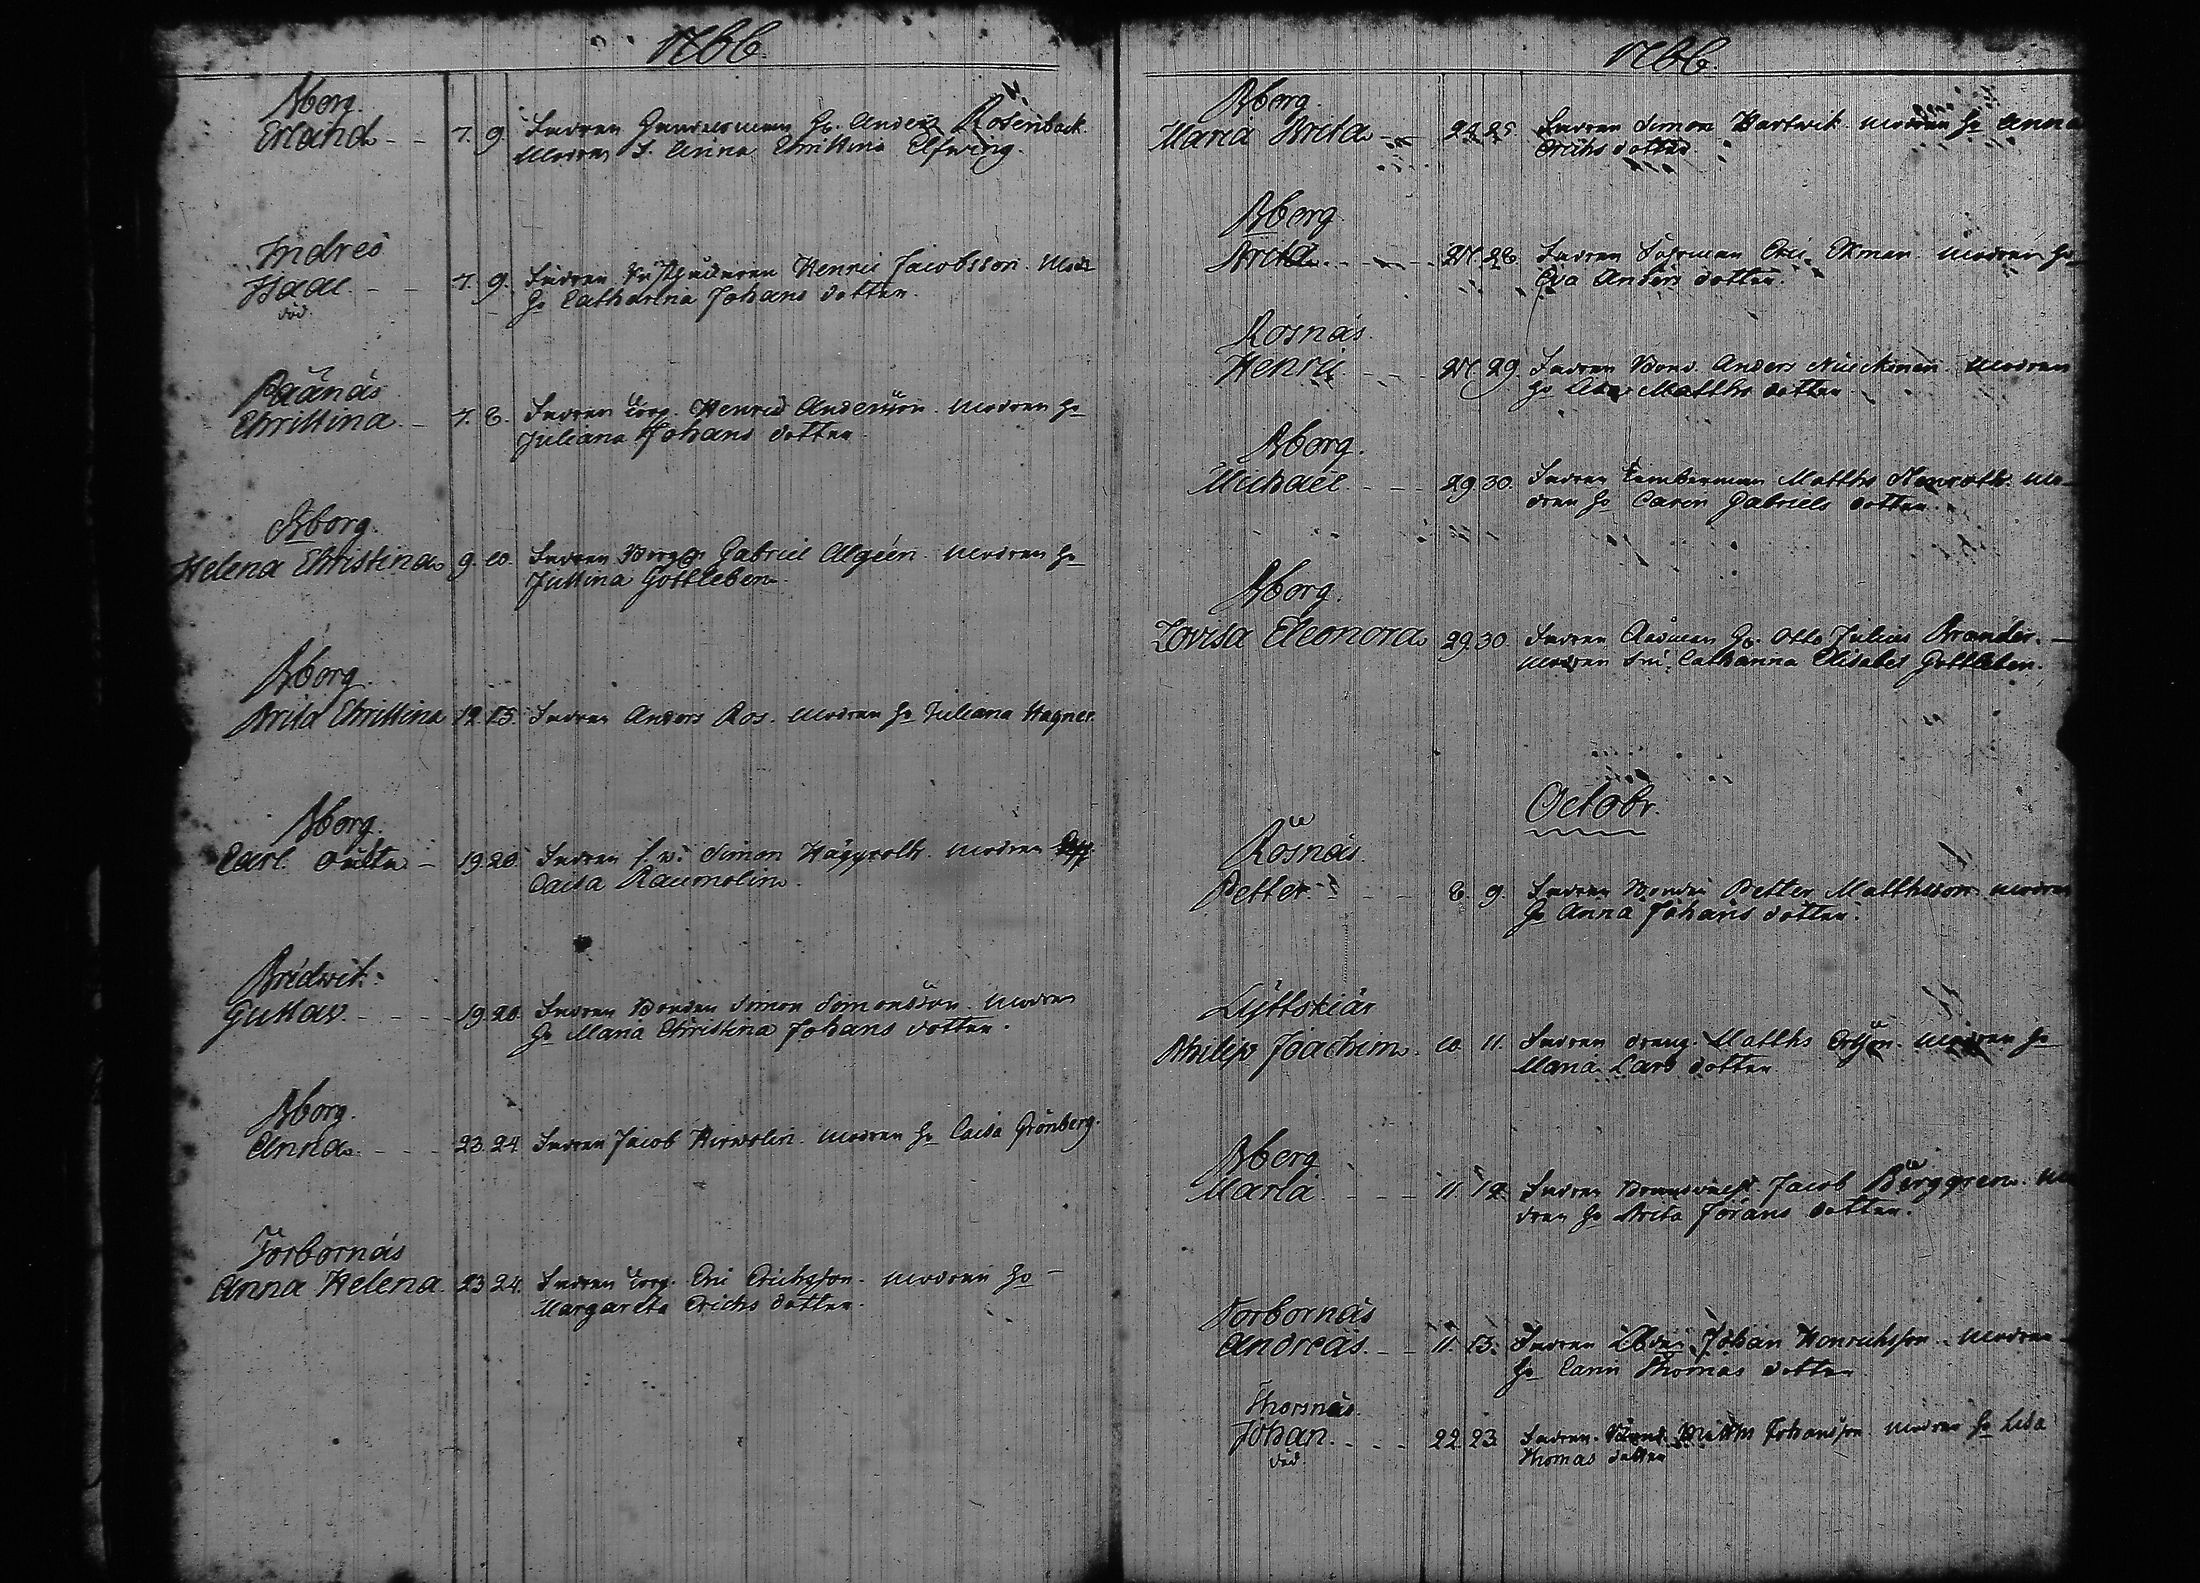 1766.
Nborg.
Erland - - 7. 9. Fadren Handelsman Hr. Anders Rosenback.
Modren F. Anna Christina Elfwing.
Indres
Isaac - - 7. 9. Fadren Henric Jacobsson. Modr
Ho Catharina Johans dotter.
död.
Päänäs
Christina - 7. 8. Fadren Torp. Henric Andersson. Modren Ho
Juliana Johans dotter.
Nborg.
Helena Christina 9. 10. Fadren Borg. Gabriel Algeen. Modren Ho
Justina Gottleben.
Nborg.
Brita Christina 12. 13. Fadren Anders Ros. Modren Ho Juliana Wagner.
Nborg.
Carl oäkta - 19. 20. Fadren Simon Häggroth. Modren
Caisa Raumolin.
Bridwik.
Gustav. - - - - 19. 20. Fadren Bonden Simon Simonsson. Modren
Ho Maria Christina Johans dotter.
Nborg.
Anna. - - - 23. 24. Fadren Jacob Hirvolin. Modren Ho Caisa Grönberg.
Torbornäs
Anna Helena. 23. 24. Fadren Torp. Eric Erichsson. Modren Ho
Margareta Erichs dotter.
1766.
Nborg.
Maria Brita - - 24. 25. Fadren Simon Hartwik. Modren Ho Anna
Erichs dotter.
Nborg.
Brita. - - - - 27. 28. Fadren Eric Ekman. Modren Ho
Eva Anders dotter.
Rosnäs.
Henric - - - 27. 29. Fadren Bond. Anders. Modren
Ho Matths dotter.
Nborg.
Michael - - - 29. 30. Fadren Timberman Matths. Mo-
dren Ho Carin Gabriels dotter.
Nborg.
Lovisa Eleonora 29. 30. Fadren Rådman Hr. Otto Julius Brander.
Modren Fru Catharina Elisabet Gottleben.
Octobr.
Rosnäs.
Petter. - - - 8. 9. Fadren Bonden Petter Matthsson. Modren
Ho Anna Johans dotter.
Lyttskiär
Philip Joachim. 10. 11. Fadren dreng. Matths. Modren Ho
Maria Lars dotter
Nborg
Maria. - - - 11. 12. Fadren Jacob Berggren. Mo
dren Ho Brita Jörans dotter.
Torbornäs
Andreas. - - 11. 13. Fadren Johan Henrichsson. Modren
Ho Carin Thomas dotter
Thorsnäs.
Johan. - - - 22. 23. Fadren Matths Johansson. Modren Ho Lisa
Thomas dotter
död.